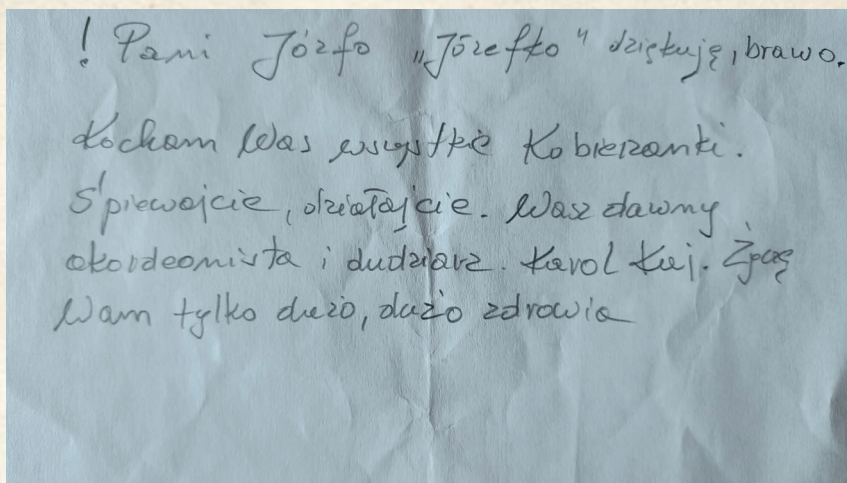 ! Pani Józfo „Józefko" dziękuję, brawo.
Kocham Was wszystkie Kobierzanki.
Śpiewajcie, działajcie. Wasz dawny
akordeonista i dudziarz. Karol Kuj. Życzę
Wam tylko dużo, dużo zdrowia